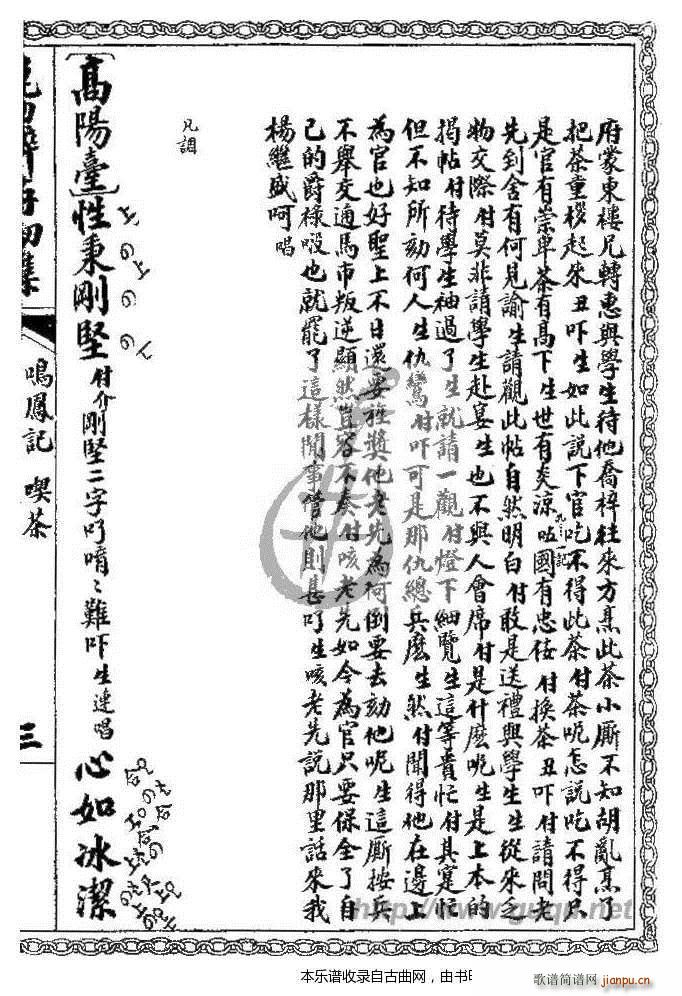 府蒙東樓兄轉惠與學生待他喬梓往來方烹此茶小厮不知胡亂烹了
把茶重椤起來丑吓生如此說下官吃不得此茶付茶呢怎說吃不得只
是官有崇卑茶有高下生世有炎涼呍國有忠佞付換茶丑吓付請問老
先到舍有何見諭生請觀此帖自然明白付敢是送禮與學生生從來乏
物交際付莫非請學生赴宴生也不與人會席付是什麼呢生是上本的
揭帖付待學生袖過了生就請一觀付燈下細覽生這等貴忙付其寔忙
但不知所劾何人生仇鸞付吓可是那仇總兵麼生然付聞得他在邊上
為官也好聖上不日還要旌獎他老先為何倒要去劾他呢生這厮按兵
不舉交通馬市叛逆顯然豈容不奏付咳老先如今為官只要保全了自
己的爵祿啜也就罷了這樣閒事管他則甚吖生咳老先說那里話來我
楊繼盛呵唱
凡調
高陽臺性秉剛堅付介剛堅二字吖唷〻難吓生連唱心如冰潔
鳴鳳記 喫茶
三
http://www.guqu.net
本乐谱收录自古曲网，由书
歌谱简谱网
jianpu.cn